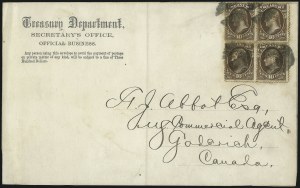 Treasury Department,
SECRETARY'S OFFICE,
OFFICIAL BUSINESS.
Any person using this envelope to avoid the payment of postage
on private matter of any kind, will be subject to a fine of Three
Hundred Dollars.
Abbot Esq.,
Commercial Agent,
Goderich,
Canada.